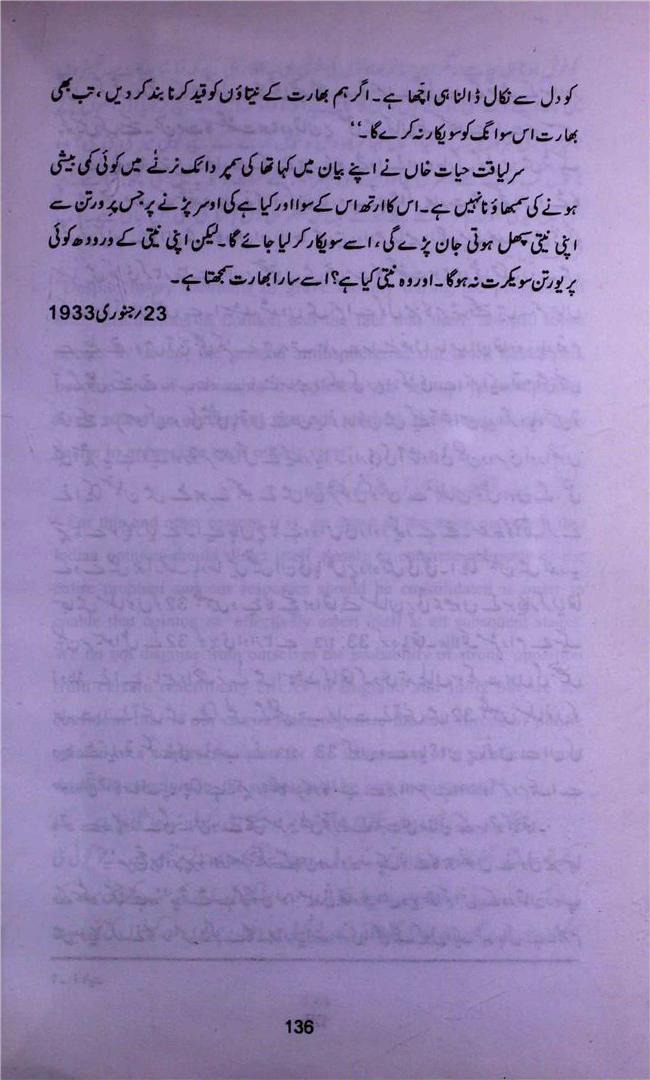 کو دل سے نکال ڈالنا ہی اچھا ہے۔ اگر ہم بھارت کے نیتاؤں کو قید کرنا بند کر دیں، تب بھی
بھارت اس سوانگ کو سویکار نہ کرے گا۔‘‘
سر لیاقت حیات خاں نے اپنے بیان میں کہا تھا کی سمپر دائک نرنے میں کوئی کمی بیشی
ہونے کی سمبھاؤنا نہیں ہے۔ اس کا ارتھ اس کے سوا اور کیا ہے کی اوسر پڑنے پر جس پرورتن سے
اپنی نیتی سپھل ہوتی جان پڑے گی، اسے سویکار کر لیا جائے گا۔ لیکن اپنی نیتی کے ورودھ کوئی
پریورتن سویکرت نہ ہوگا۔ اور وہ نیتی کیا ہے؟ اسے سارا بھارت سمجھتا ہے۔
23/جنوری 1933
136